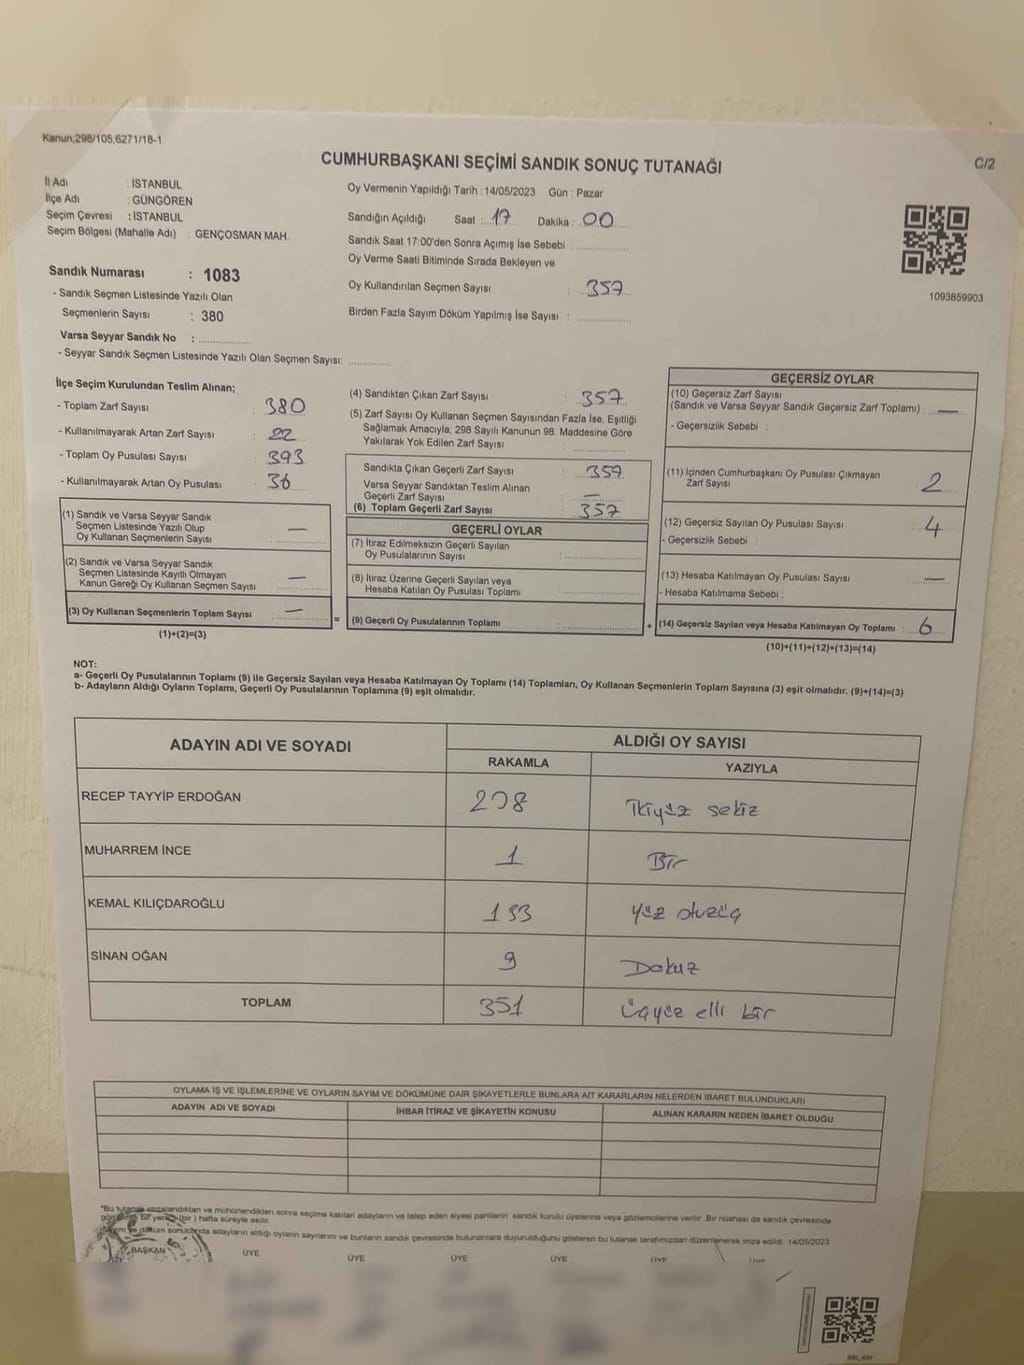 Kanun;298/105,6271/18-1
CUMHURBAŞKANI SEÇİMİ SANDIK SONUÇ TUTANAĞI
C/2
İl Adı : İSTANBUL
İlçe Adı : GÜNGÖREN
Seçim Çevresi : İSTANBUL
Seçim Bölgesi (Mahalle Adı) : GENÇOSMAN MAH.
Sandık Numarası : 1083
- Sandık Seçmen Listesinde Yazılı Olan
Seçmenlerin Sayısı : 380
Varsa Seyyar Sandık No :
- Seyyar Sandık Seçmen Listesinde Yazılı Olan Seçmen Sayısı:
Oy Vermenin Yapıldığı Tarih : 14/05/2023 Gün : Pazar
Sandığın Açıldığı Saat : 17 Dakika : 00
Sandık Saat 17:00'den Sonra Açımış İse Sebebi :
Oy Verme Saati Bitiminde Sırada Bekleyen ve
Oy Kullandırılan Seçmen Sayısı : 357
Birden Fazla Sayım Döküm Yapılmış İse Sayısı :
1093859903
İlçe Seçim Kurulundan Teslim Alınan;
- Toplam Zarf Sayısı : 380
- Kullanılmayarak Artan Zarf Sayısı : 22
- Toplam Oy Pusulası Sayısı : 393
- Kullanılmayarak Artan Oy Pusulası : 36
(1) Sandık ve Varsa Seyyar Sandık
Seçmen Listesinde Yazılı Olup
Oy Kullanan Seçmenlerin Sayısı : —
(2) Sandık ve Varsa Seyyar Sandık
Seçmen Listesinde Kayıtlı Olmayan
Kanun Gereği Oy Kullanan Seçmen Sayısı : —
(3) Oy Kullanan Seçmenlerin Toplam Sayısı : —
(1)+(2)=(3)
(4) Sandıktan Çıkan Zarf Sayısı : 357
(5) Zarf Sayısı Oy Kullanan Seçmen Sayısından Fazla İse, Eşitliği
Sağlamak Amacıyla; 298 Sayılı Kanunun 98. Maddesine Göre
Yakılarak Yok Edilen Zarf Sayısı :
Sandıkta Çıkan Geçerli Zarf Sayısı : 357
Varsa Seyyar Sandıktan Teslim Alınan
Geçerli Zarf Sayısı : —
(6) Toplam Geçerli Zarf Sayısı : 357
GEÇERLİ OYLAR
(7) İtiraz Edilmeksizin Geçerli Sayılan
Oy Pusulalarının Sayısı :
(8) İtiraz Üzerine Geçerli Sayılan veya
Hesaba Katılan Oy Pusulası Toplamı :
= (9) Geçerli Oy Pusulalarının Toplamı :
GEÇERSİZ OYLAR
(10) Geçersiz Zarf Sayısı
(Sandık ve Varsa Seyyar Sandık Geçersiz Zarf Toplamı) : —
- Geçersizlik Sebebi :
(11) İçinden Cumhurbaşkanı Oy Pusulası Çıkmayan
Zarf Sayısı : 2
(12) Geçersiz Sayılan Oy Pusulası Sayısı : 4
- Geçersizlik Sebebi :
(13) Hesaba Katılmayan Oy Pusulası Sayısı : —
- Hesaba Katılmama Sebebi :
+ (14) Geçersiz Sayılan veya Hesaba Katılmayan Oy Toplamı : 6
(10)+(11)+(12)+(13)=(14)
NOT:
a- Geçerli Oy Pusulalarının Toplamı (9) ile Geçersiz Sayılan veya Hesaba Katılmayan Oy Toplamı (14) Toplamları, Oy Kullanan Seçmenlerin Toplam Sayısına (3) eşit olmalıdır. (9)+(14)=(3)
b- Adayların Aldığı Oyların Toplamı, Geçerli Oy Pusulalarının Toplamına (9) eşit olmalıdır.
ADAYIN ADI VE SOYADI ALDIĞI OY SAYISI
RAKAMLA YAZIYLA
RECEP TAYYİP ERDOĞAN 208 ikiyüz sekiz
MUHARREM İNCE 1 Bir
KEMAL KILIÇDAROĞLU 133 yüz otuzüç
SİNAN OĞAN 9 Dokuz
TOPLAM 351 üçyüz elli bir
OYLAMA İŞ VE İŞLEMLERİNE VE OYLARIN SAYIM VE DÖKÜMÜNE DAİR ŞİKAYETLERLE BUNLARA AİT KARARLARIN NELERDEN İBARET BULUNDUKLARI
ADAYIN ADI VE SOYADI İHBAR İTİRAZ VE ŞİKAYETİN KONUSU ALINAN KARARIN NEDEN İBARET OLDUĞU
*Bu tutanak imzalandıktan ve mühürlendikten sonra seçime katılan adayların ve talep eden siyasi partilerin sandık kurulu üyelerine veya gözlemcilerine verilir. Bir nüshası da sandık çevresinde
bir yere (bir) hafta süreyle asılır.
ve döküm sonucunda adayların aldığı oyların sayılarını ve bunların sandık çevresinde bulunanlara duyurulduğunu gösteren bu tutanak tarafımızdan düzenlenerek imza edildi. 14/05/2023
BAŞKAN ÜYE ÜYE ÜYE ÜYE ÜYE ÜYE